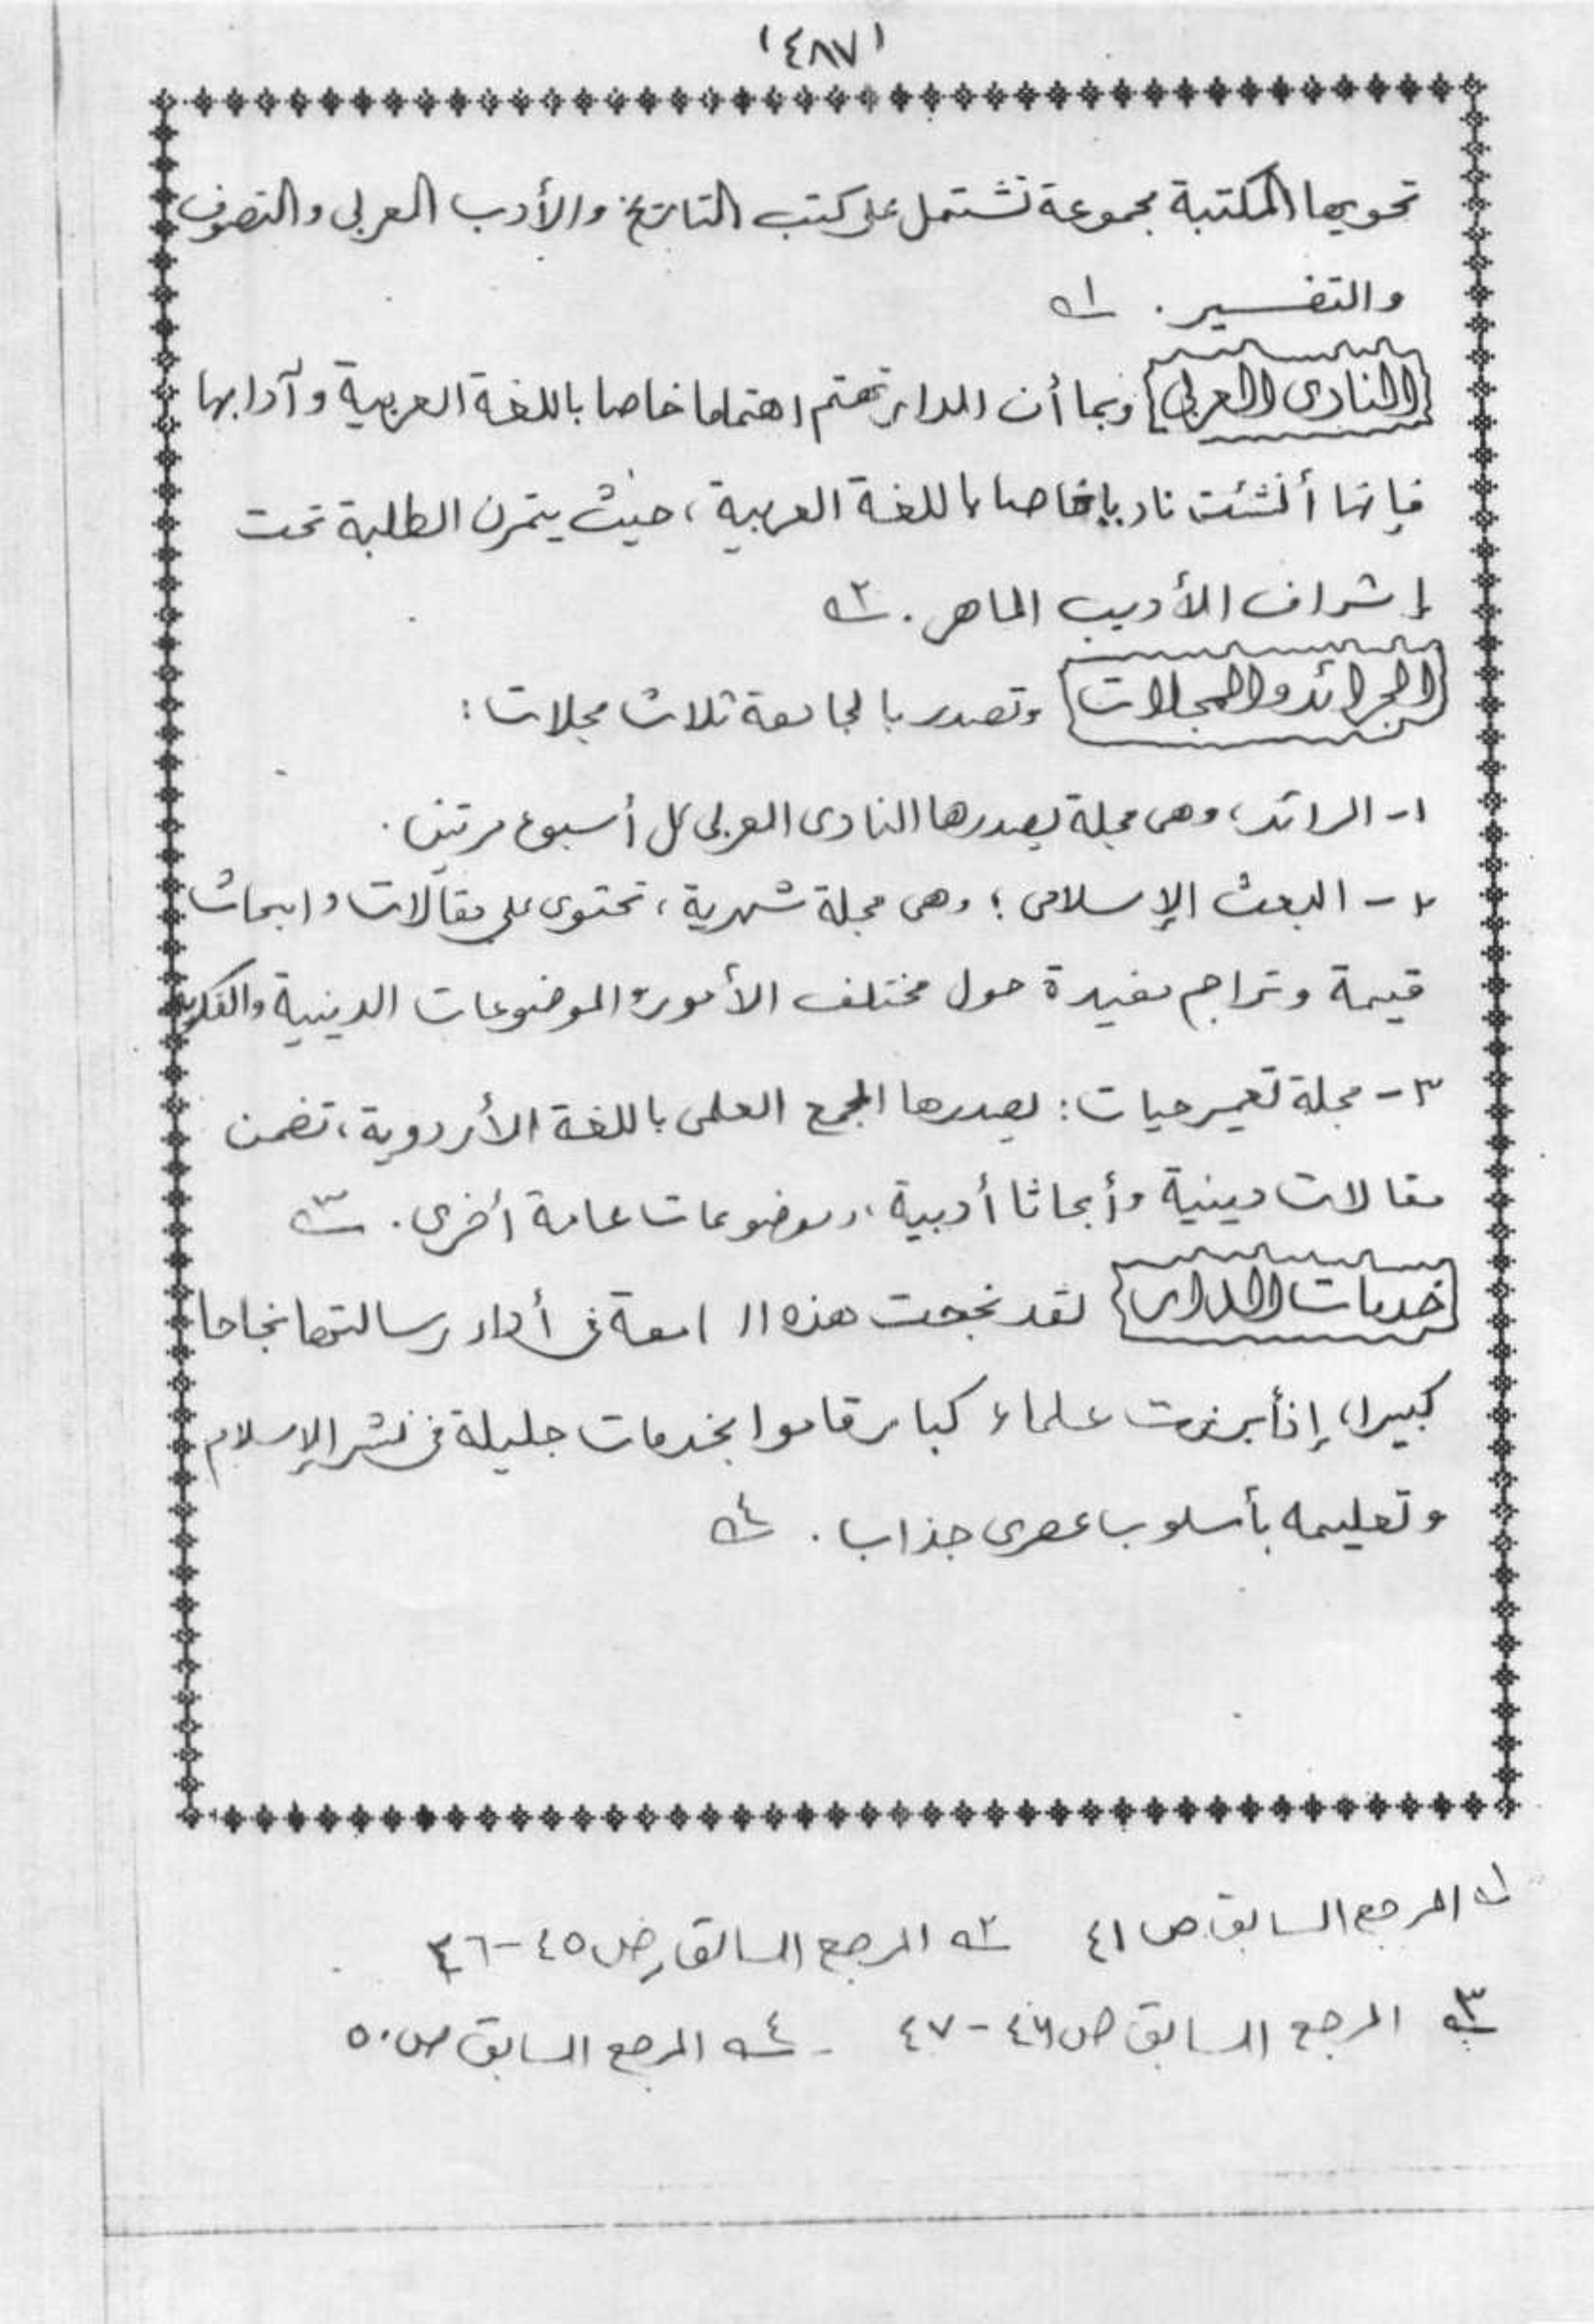 (٤٨٧)
تحويها المكتبة مجموعة تشتمل على كتب التاريخ والأدب العربى والتصوف
والتفسير. ١ه
النادى العربي وبما أن الدار تهتم اهتماما خاصا باللغة العربية وآدابها
فإنها أنشئت ناديا خاصا باللغة العربية، حيث يتمرن الطلبة تحت
إشراف الأديب الماهر. ٢ه
الجرائد والمجلات وتصدر بالجامعة ثلاث مجلات:
١- الرائد، وهى مجلة يصدرها النادى العربى كل أسبوع مرتين.
٢- البعث الإسلامى؛ وهى مجلة شهرية، تحتوى على مقالات وابحاث
قيمة وتراجم مفيدة حول مختلف الأمور والموضوعات الدينية والفكرية
٣- مجلة تعمير حيات: يصدرها المجمع العلمى باللغة الأردوية، تضمن
مقالات دينية وأبحاثا أدبية، وموضوعات عامة أخرى. ٣ه
خدمات الدار لقد نجحت هذه ال امعة فى أداء رسالتها نجاحا
كبيرا، إذ أبرزت علماء كبار قاموا بخدمات جليلة فى نشر الإسلام
وتعليمه بأسلوب عصرى جذاب. ٤ه
١ه المرجع السابق ص ٤١ ٢ه المرجع السابق ص ٤٥-٤٦
٣ه المرجع السابق ص ٤٦-٤٧ - ٤ه المرجع السابق ص ٥٠